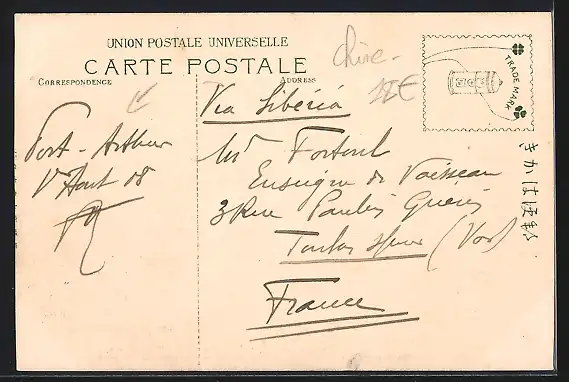 UNION POSTALE UNIVERSELLE
CARTE POSTALE
CORRESPONDENCE
ADDRESS
TRADE MARK
Chine
Via Sibéria
Port-Arthur
1er Aout 08
Mr Fortoul
Enseigne de Vaisseau
3 Rue Paulin Guérin
Toulon s/mer (Var)
France
きかはほ便郵